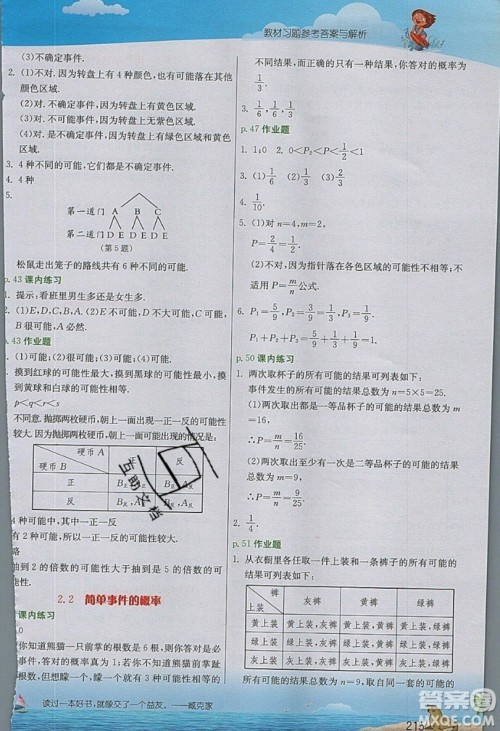 教材习题参考答案与解析
(3)不确定事件.
2. (1)不对. 因为转盘上有 4 种颜色,也有可能落在其
他区域.
(2)对. 不确定事件,因为转盘上有黄色区域.
(3)对. 不可能事件,因为转盘上无紫色区域.
(4)对. 不确定事件,因为转盘上有绿色区域和黄色
区域.
3. 4 种不同的可能,它们都是不确定事件.
4. 4 种
5.
第一道门 A B C
第二道门 D E D E D E
(第 5 题)
松鼠走出笼子的路线共有 6 种不同的可能.
p.43 课内练习
1. 提示:看班里男生多还是女生多.
2. (1)E,D,C,B,A (2)E,A 可能性相等,D,C 可能,
B 很可能,A 必然.
p.43 作业题
(1)可能;(2)可能;(3)可能;(4)可能.
摸到红球的可能性最大,摸到黑球的可能性最小,摸
到黄球和白球的可能性相等.
p<q<r<s
不同意. 抛掷两枚硬币,朝上一面出现一正一反的可
能性较大. 抛掷两枚硬币,朝上一面出现的可能结果
为:
硬币 A
硬币 B
正 反
正
反
4 种可能中,其中一正一反有
有 2 种可能,所以一正一反的可能性较大.
略
抽到 2 的倍数的可能性大于抽到是 5 的倍数的可
能性.
2.2 简单事件的概率
课内练习
0
你知道熊猫一只前掌的根数是 5 根,则你答对是必
然事件,答对的概率为 1;若你不知道熊猫前掌趾
根数,但也想了个答案,朦一朦,若朦一个有两种可
读过一本好书,就像交了一个益友。——臧克家
不同结果,而正确的结果只有一种,你答对的概率为
1/3.
3. 1/6, 1/6, 1/3
p.47 作业题
1. 1;0 2. 0<P₃<P₂<P₁<1
3. (1) 1/6 (2) 1/2 (3) 2/3
4. 1/10.
5. (1)对 n=4,m=2,
P=2/4=1/2.
(2)不对,因为指针落在各色区域的可能性不相等;不
适用 P=m/n 公式.
6. P₁=5/9,P₂=3/9=1/3,P₃=1/9.
P₁+P₂=5/9+3/9=8/9.
p.50 课内练习
1. 两次取杯子的所有可能的结果可列表如下:
事件发生的所有可能的结果总数为 n=5×5=25.
(1)两次都取到一等品的可能的结果总数为 m
=16,
∴P=m/n=16/25.
(2)两次取出至少有一次二等品杯子的可能的结果
总数为 m=9,∴P=m/n=9/25.
2. 1/4.
p.51 作业题
1. 从衣橱里各任取一件上装和一条裤子的所有可能的
结果可列表如下:
裤
上装
灰裤 黄裤 绿裤
黄上装 黄上装,灰裤 黄上装,黄裤 黄上装,绿裤
灰上装 灰上装,灰裤 灰上装,黄裤 灰上装,绿裤
绿上装 绿上装,灰裤 绿上装,黄裤 绿上装,绿裤
所有可能的结果总数为 n=9,
213
互助文档
答案圈